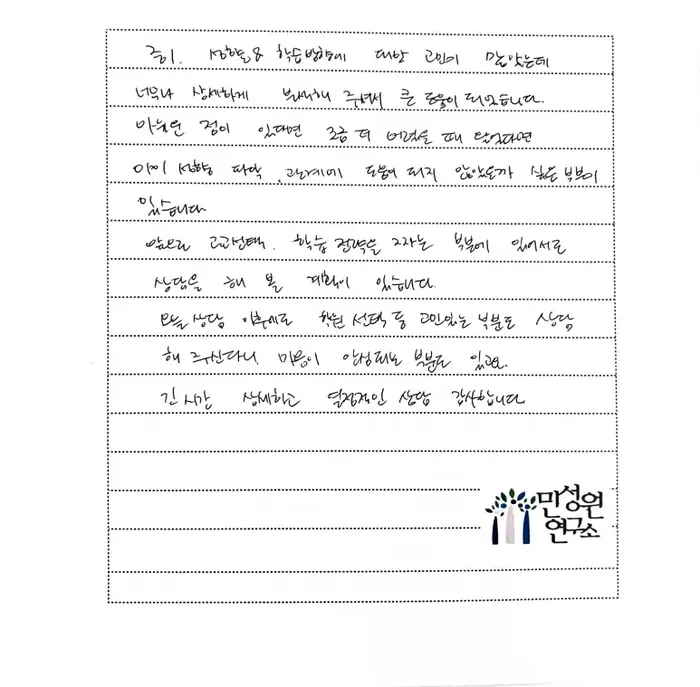 중1. 성향& 학습방향에 대한 고민이 많았는데
너무나 상세하게 분석해 주셔서 큰 도움이 되었습니다.
아쉬운 점이 있다면 조금 더 어렸을 때 왔었다면
아이 성향 파악, 관계에 도움이 되지 않았을까 싶은 부분이
있습니다
앞으로 고교선택, 학습 전략을 짜는 부분에 있어서도
상담을 해 볼 계획이 있습니다.
오늘 상담 이후에도 학원 선택 등 고민있는 부분도 상담
해 주신다니 마음이 안심되는 부분도 있고요.
긴 시간 상세하고 열정적인 상담 감사합니다
민성원
연구소